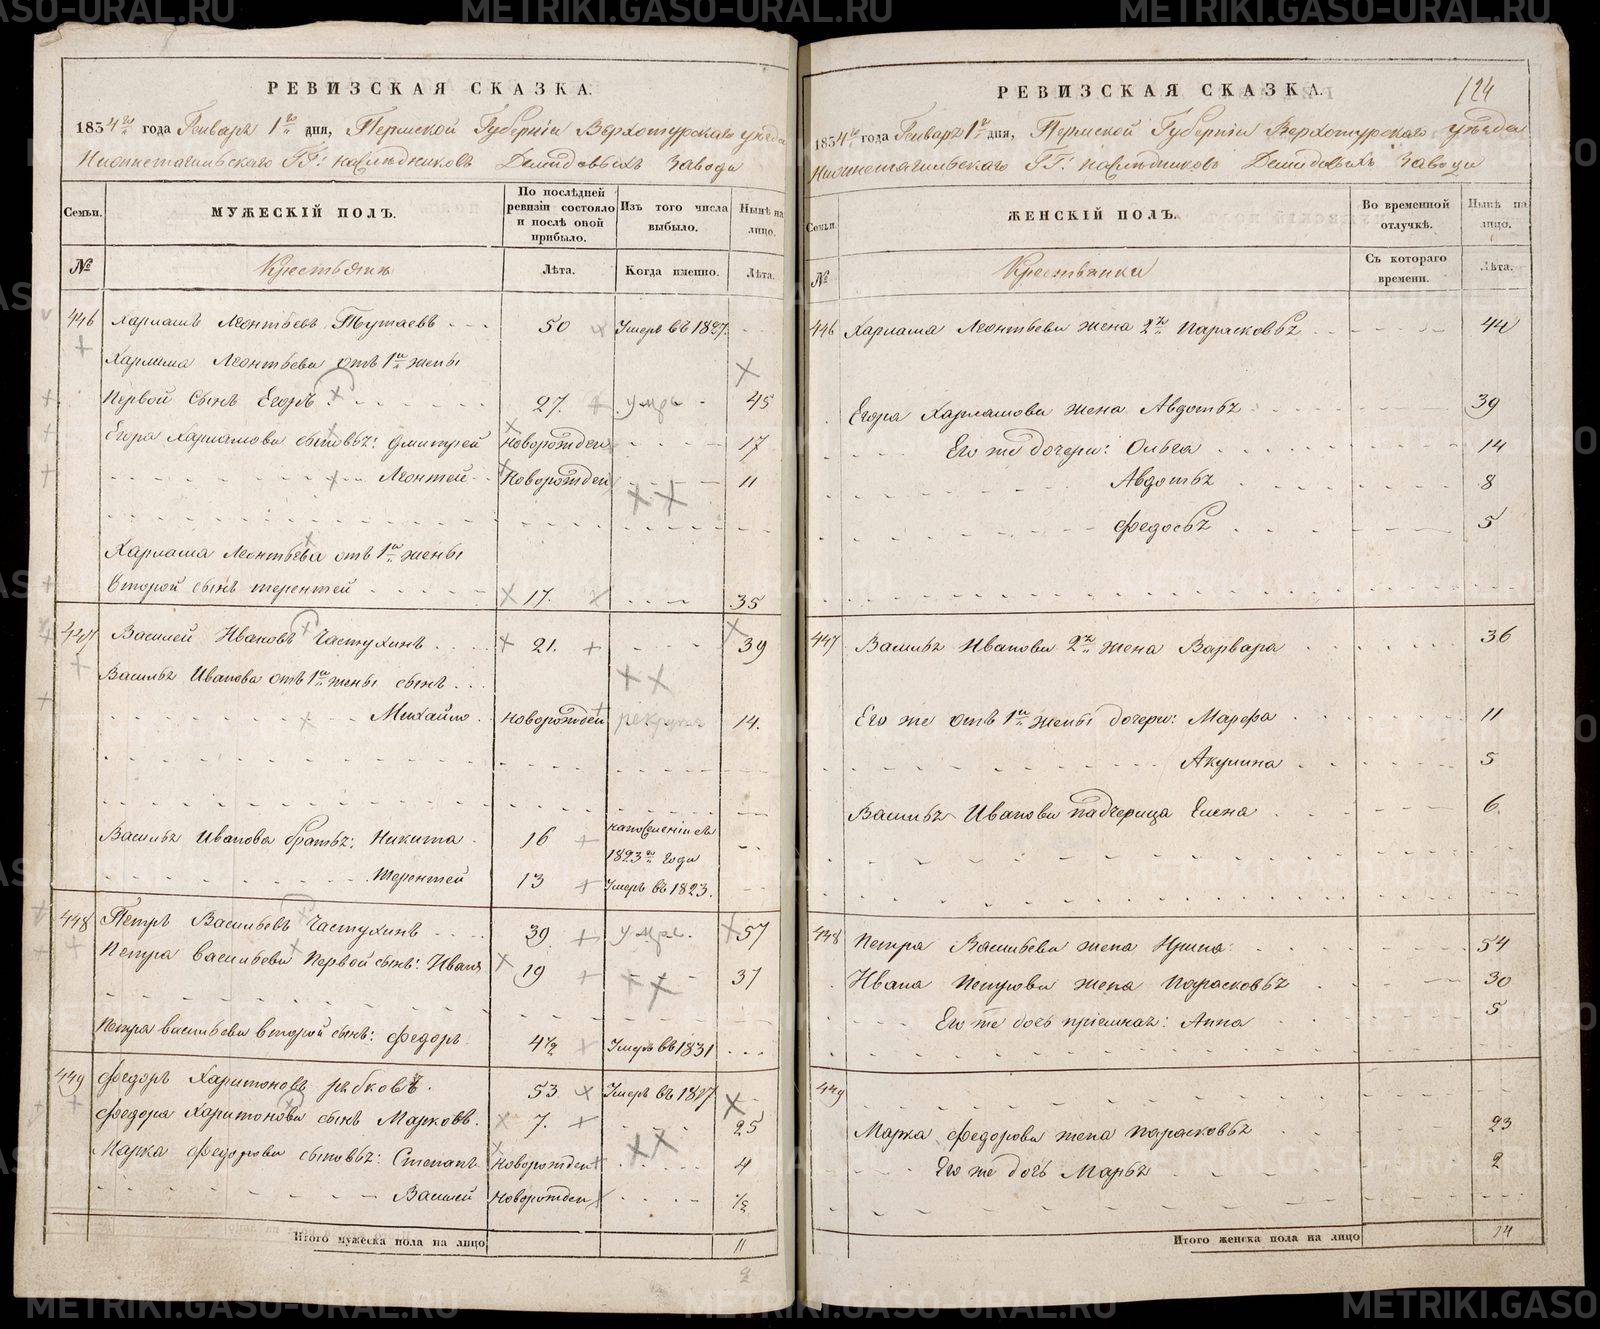 РЕВИЗСКАЯ СКАЗКА.
1834го года Генваря 1го дня, Пермской Губерніи Верхотурскаго уѣзда
Нижнетагильскаго ГГ: наслѣдниковъ Демидовыхъ завода
Семьи.
МУЖЕСКІЙ ПОЛЪ.
По послѣдней ревизіи состояло и послѣ оной прибыло.
Изъ того числа выбыло.
Нынѣ на лицо.
№
Крестьяне
Лѣта.
Когда именно.
Лѣта.
446 Харламъ Леонтьевъ Тутаевъ 50 Умеръ въ 1827.
Харлама Леонтьева отъ 1й жены
Первой сынъ Егоръ 27. умеръ 45
Егора Харламова сыновья: Дмитрей новорожден 17
Леонтей новорожден 11
Харлама Леонтьева отъ 1й жены
Второй сынъ Терентей 17. 35
447 Василей Ивановъ Частухинъ 21. 39
Василья Иванова отъ 1й жены сынъ
Михайло новорожден рекрутъ 14.
Василья Иванова братья: Никита 16
1823го года
Терентей 13 Умеръ въ 1823.
448 Петръ Васильевъ Частухинъ 39. умеръ. 57
Петра Васильева Первой сынъ: Иванъ 19 37
Петра Васильева второй сынъ: Федоръ 4½ Умеръ въ 1831
449 Федоръ Харитоновъ Рябковъ. 53. Умеръ въ 1827
Федора Харитонова сынъ Марковъ. 7. 25
Марка Федорова сыновья: Степанъ новорожден 4
Василей новорожден ½
Итого мужеска пола на лицо 11
9
РЕВИЗСКАЯ СКАЗКА.
124
1834го года Генваря 1го дня, Пермской Губерніи Верхотурскаго уѣзда
Нижнетагильскаго ГГ: наслѣдниковъ Демидовыхъ завода
Семьи.
ЖЕНСКІЙ ПОЛЪ.
Во временной отлучкѣ.
Нынѣ на лицо.
№
Крестьянки
Съ котораго времени.
Лѣта.
446 Харлама Леонтьева жена 2я Парасковья 44
Егора Харламова жена Авдотья 39
Его же дочери: Ольга 14
Авдотья 8
Федосья 5
447 Василья Иванова 2я жена Варвара 36
Его же отъ 1й жены дочери: Марфа 11
Акулина 5
Василья Иванова падчерица Елена 6.
448 Петра Васильева жена Ирина 54
Ивана Петрова жена Парасковья 30
Его же дочь пріемная: Анна 5
449
Марка Федорова жена Парасковья 23
Его же дочь Марья 2
Итого женска пола на лицо 14
METRIKI.GASO-URAL.RU